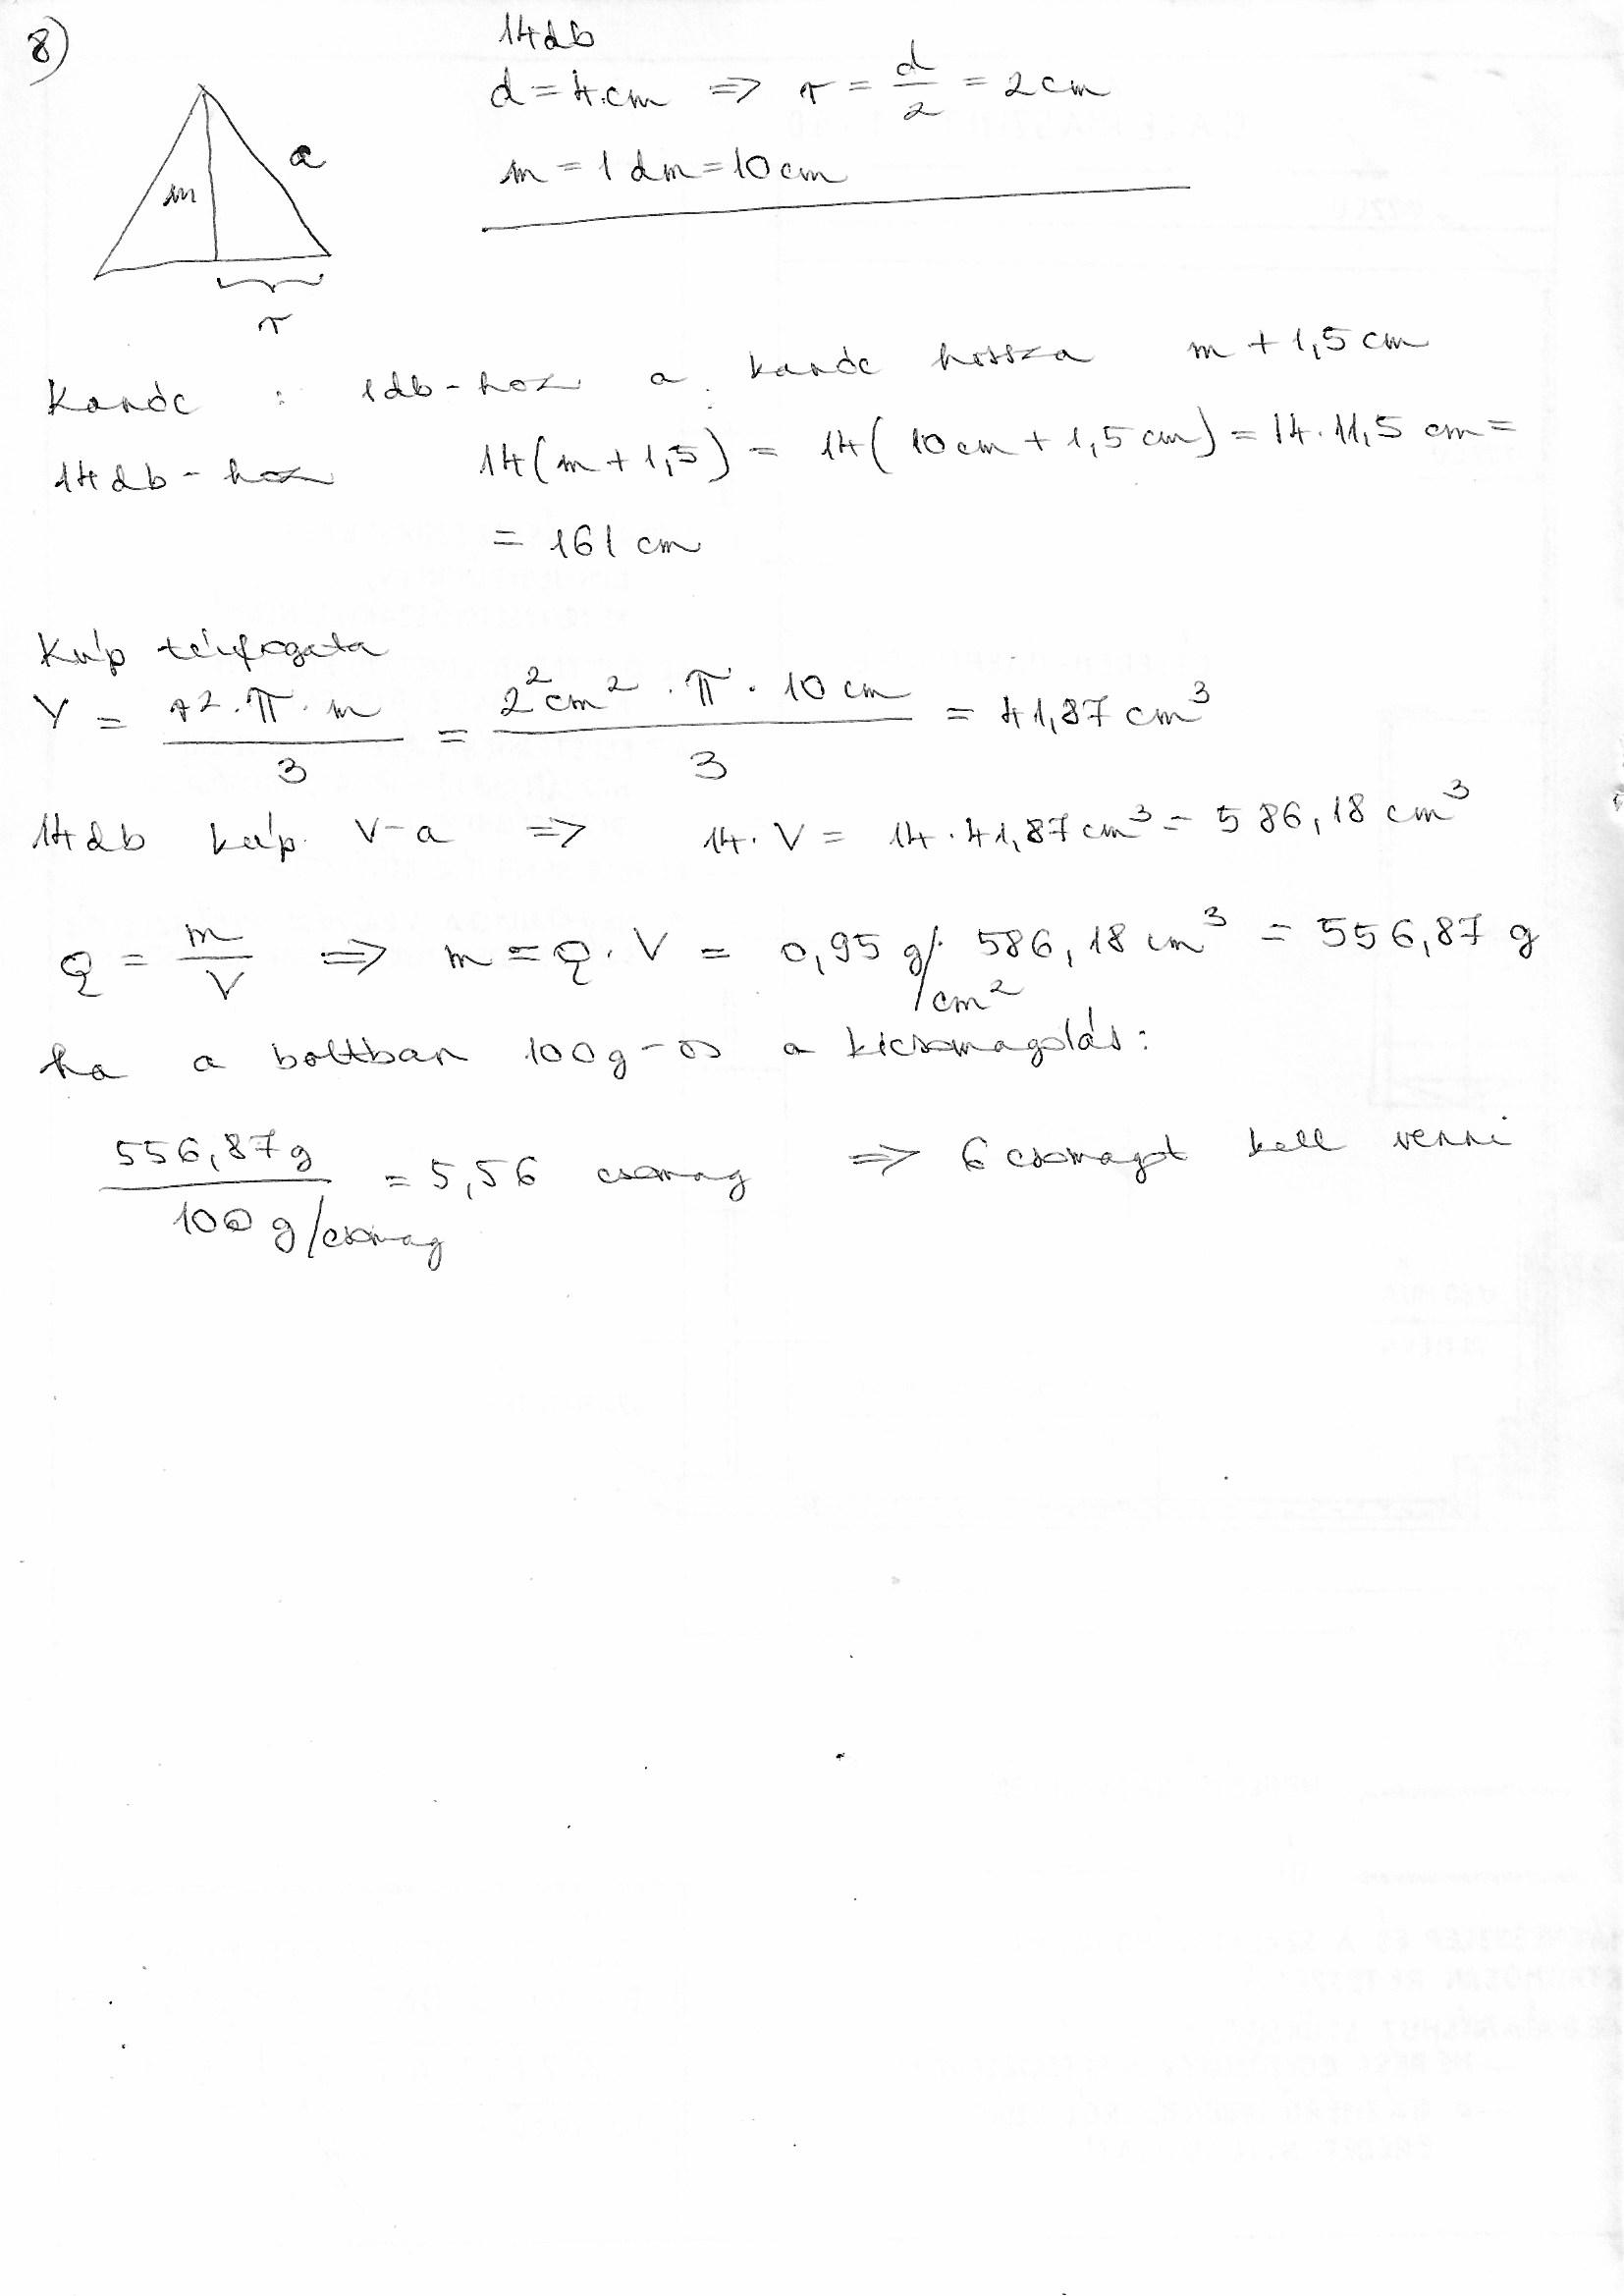 8)
14db
d = 4cm => r = d/2 = 2cm
m = 1dm = 10cm
m
a
r
Kanóc : 1db-hoz a kanóc hossza m + 1,5 cm
14db-hoz 14(m + 1,5) = 14(10cm + 1,5 cm) = 14·11,5 cm =
= 161 cm
Kúp térfogata
V = r²·π·m / 3 = 2²cm²·π·10cm / 3 = 41,87 cm³
14db kúp V-a => 14·V = 14·41,87cm³ = 586,18 cm³
ρ = m/V => m = ρ·V = 0,95 g/cm²·586,18 cm³ = 556,87 g
ha a boltban 100g-os a kicsomagolás:
556,87g / 100 g/csomag = 5,56 csomag => 6 csomagot kell venni